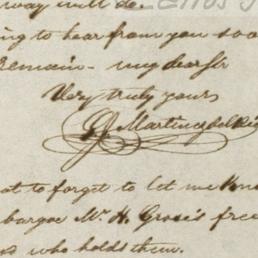 way will do.
ing to hear from you soo
Remain - my dear Sir
Very truly yours
Martin
ot to forget to let me kno
bargoe Mr. H. Grose's free
who holds them.